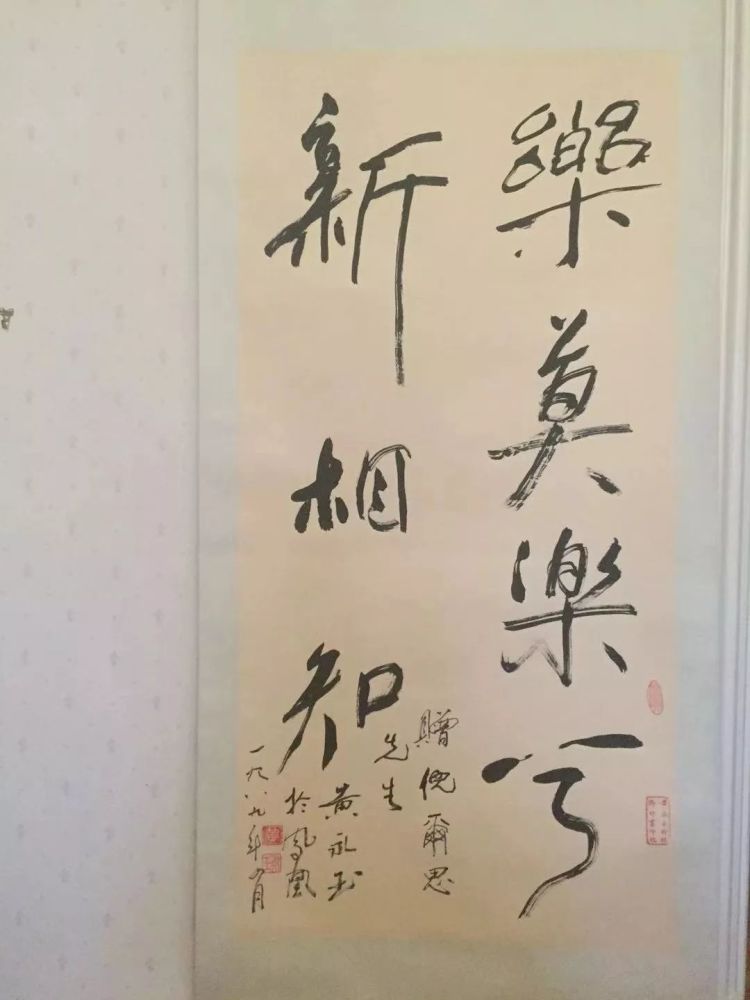 樂莫樂兮
新相知
贈倪爾思
先生
黄永玉
於鳳凰
一九八九年四月